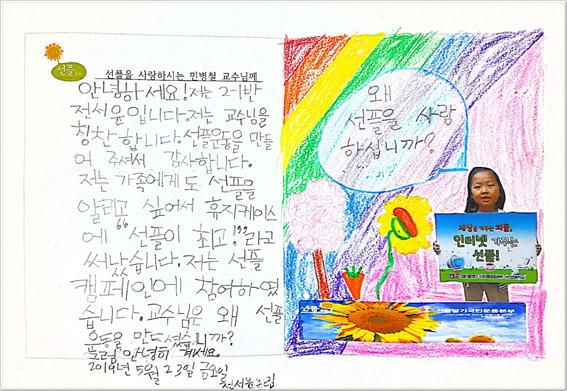 선플
선플을 사랑하시는 민병철 교수님께
안녕하세요! 저는 2-1반
전서윤입니다. 저는 교수님을
칭찬합니다. 선플운동을 만들
어 주셔서 감사합니다.
저는 가족에게도 선플을
알리고 싶어서 휴지케이스
에 "선플이 최고!"라고
써놨습니다. 저는 선플
캠페인에 참여하였
습니다. 교수님은 왜 선플
운동을 만드셨습니까?
그럼 안녕히 계세요.
2019년 5월 23일 금요일
전서윤 드림
왜
선플을 사랑
하십니까?
세상을 가꾸는 파워,
인터넷 가꾸는
선플!
선플달기국민운동본부